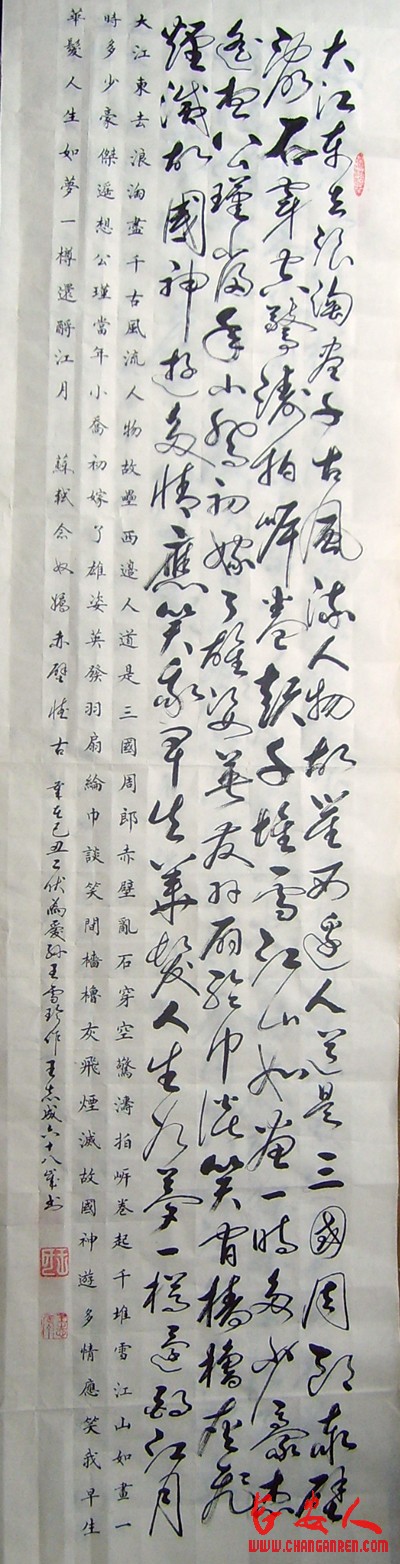 大江東去浪淘盡千古風流人物故壘西邊人道是三國周郎赤壁
亂石穿空驚濤拍岸卷起千堆雪江山如畫一時多少豪傑
遙想公瑾當年小喬初嫁了雄姿英發羽扇綸巾談笑間檣櫓灰飛
煙滅故國神遊多情應笑我早生華髮人生如夢一樽還酹江月
大江東去浪淘盡千古風流人物故壘西邊人道是三國周郎赤壁亂石穿空驚濤拍岍卷起千堆雪江山如畫一
時多少豪傑遥想公瑾當年小喬初嫁了雄姿英發羽扇綸巾談笑間檣櫓灰飛煙滅故國神遊多情應笑我早生
華髮人生如夢一樽還酹江月 蘇軾念奴嬌赤壁懷古 己丑二伏為愛孫王雪珍作王志成六十八歲書
長安人
WWW.CHANGANREN.COM